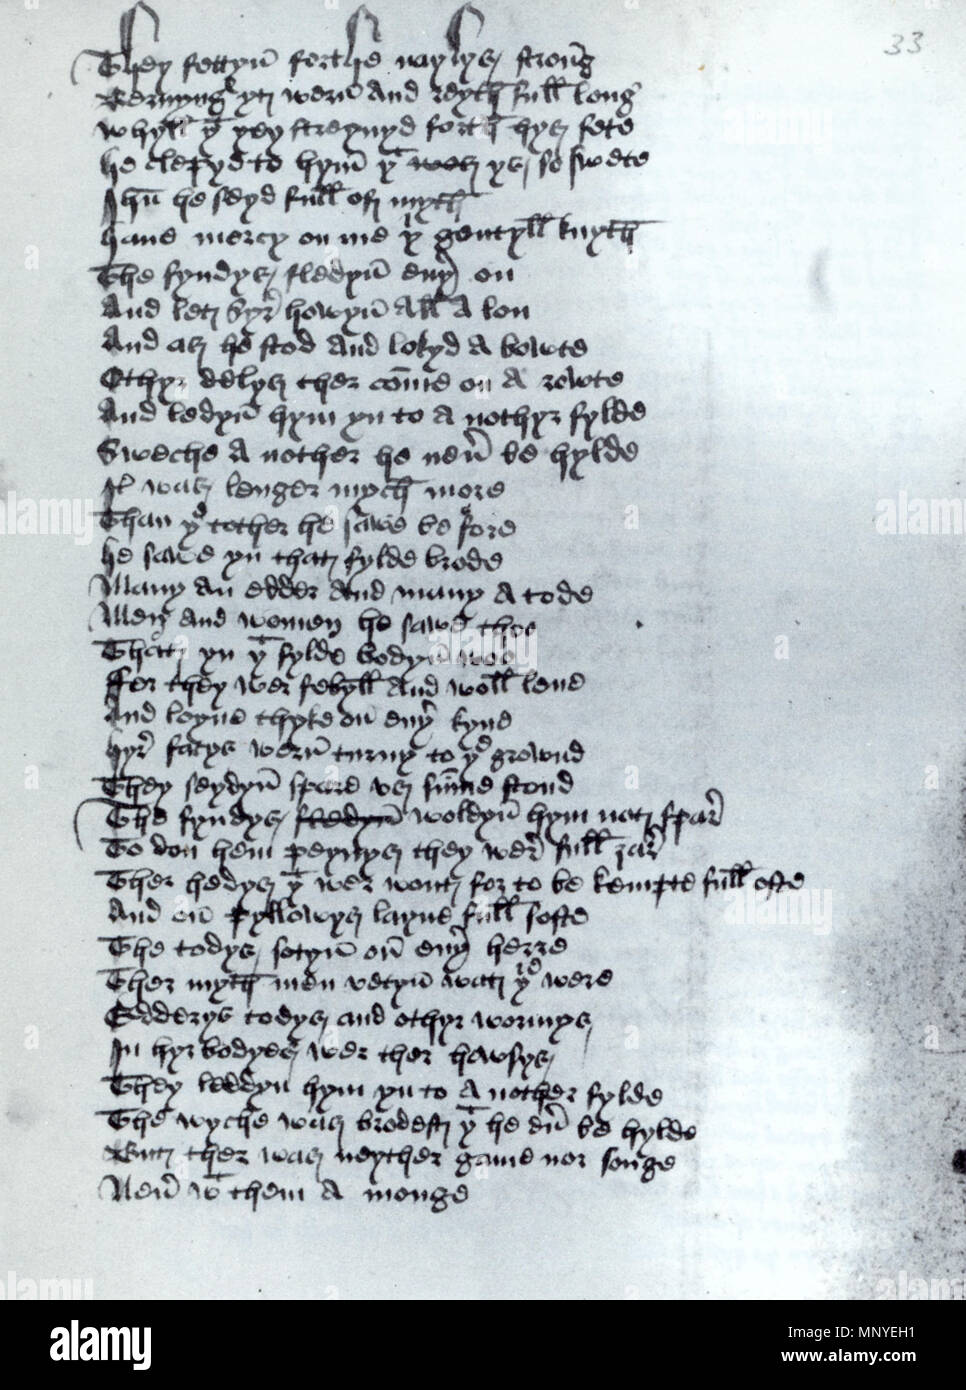 33
They fettyn̄ forthe naylys strong
Bernyng yt wern̄ And reyth full long
Whyll yͭ yey streynyd forth hys fete
he clepyd to hym̄ yͭ was ys so swete
Ihū he seyd full of myth
haue mercy on me yͭ gentyll knyth
The fyndys fledyn̄ euy on
And let Syr howyn̄ All A lon
And as he stod And lokyd A bowte
Othyr deuelys ther cōme on A rowte
And ledyn̄ hym yn to A nothyr fylde
Sweche A nother he neū be hylde
It was lenger mych more
Than yͤ tother he sawe be fore
he sawe yn that fylde brode
Many An edder And many A tode
Men And women he sawe thoo
That yn yͭ fylde bodyn̄ woo
For they wer febyll And woll lene
And loyne thyke on̄ euy kyne
hyr facys wern̄ turny to yͤ grownd
They seydyn̄ spare vs sūme stond
The fyndys fledyn̄ woldyn̄ hym nat spar
To don hem peynys they wer full ȝar
Ther hedys yͭ wer wont for to be kempte full ofte
And on̄ pyllowys layne full softe
The todys sotyn̄ on̄ euy herre
Ther myth men vetyn̄ wat yͤ were
Edderys todys and othyr wormys
In hyr bodyes wer ther howsys
They leddyn hym yn to A nother fylde
The wyche was brodest yͭ he eū be hylde
But ther was neyther game nor songe
Neū wͭ them A monge
alamy
Image ID: MNYEH1
www.alamy.com